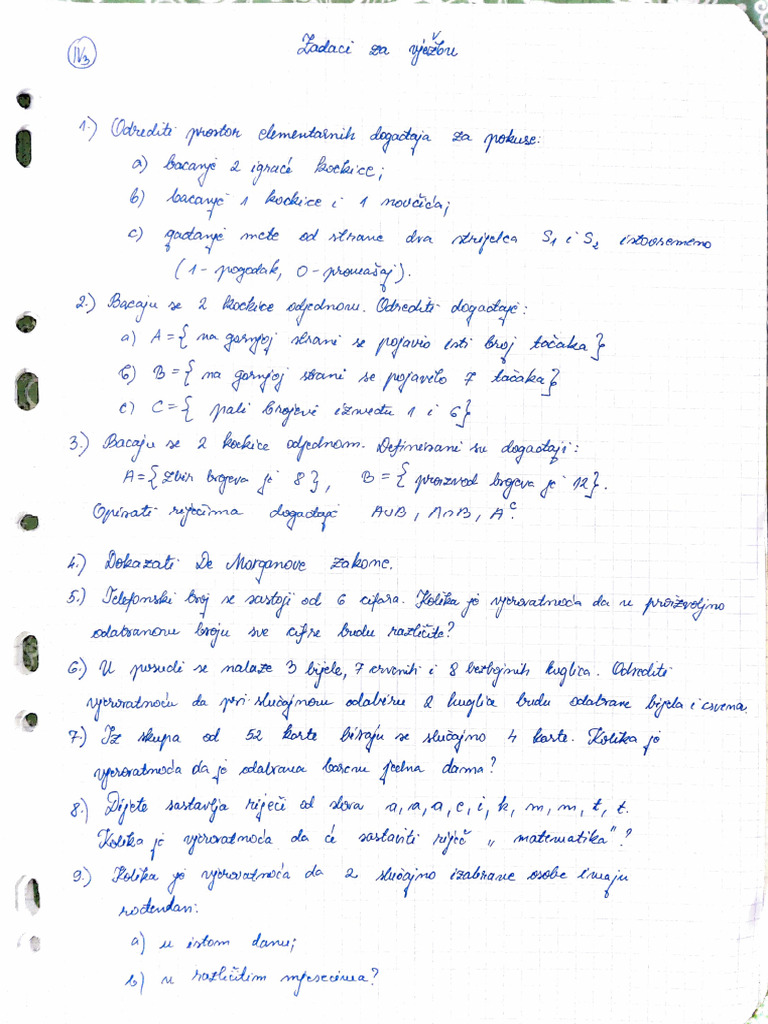 IV/3
Zadaci za vježbu
1.) Odrediti prostor elementarnih događaja za pokuse:
a) bacanje 2 igraće kockice;
b) bacanje 1 kockice i 1 novčića;
c) gađanje mete od strane dva strijelca S₁ i S₂ istovremeno
(1 - pogodak, 0 - promašaj).
2.) Bacaju se 2 kockice odjednom. Odrediti događaje:
a) A = { na gornjoj strani se pojavio isti broj tačaka }
b) B = { na gornjoj strani se pojavilo 7 tačaka }
c) C = { pali brojevi između 1 i 6 }
3.) Bacaju se 2 kockice odjednom. Definisani su događaji:
A = { zbir brojeva je 8 }, B = { proizvod brojeva je 12 }.
Opisati riječima događaje A∪B, A∩B, Aᶜ.
4.) Dokazati De Morganove zakone.
5.) Telefonski broj se sastoji od 6 cifara. Kolika je vjerovatnoća da u proizvoljno
odabranom broju sve cifre budu različite?
6.) U posudi se nalaze 3 bijele, 7 crvenih i 8 bezbojnih kuglica. Odrediti
vjerovatnoću da pri slučajnom odabiru 2 kuglice budu odabrane bijela i crvena.
7.) Iz skupa od 52 karte biraju se slučajno 4 karte. Kolika je
vjerovatnoća da je odabrana barem jedna dama?
8.) Dijete sastavlja riječi od slova a, a, a, e, i, k, m, m, t, t.
Kolika je vjerovatnoća da će sastaviti riječ „matematika"?
9.) Kolika je vjerovatnoća da 2 slučajno izabrane osobe imaju
rođendan:
a) u istom danu;
b) u različitim mjesecima?